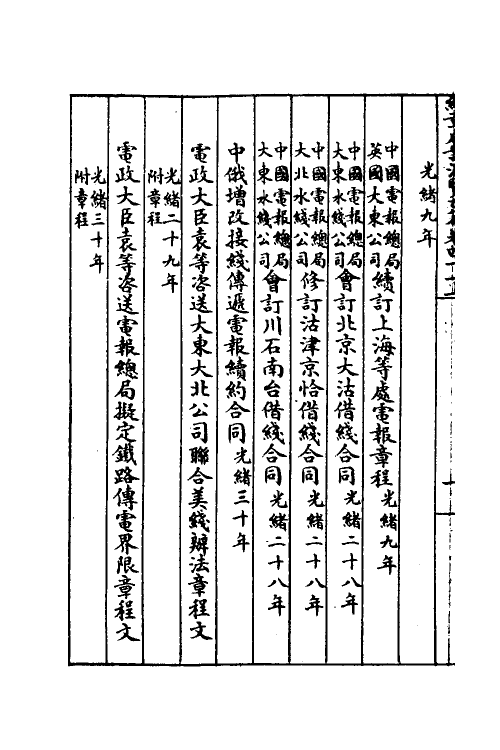 光緒九年
中國電報總局
英國大東公司續訂上海等處電報章程光緒九年
中國電報總局
大東水綫公司會訂北京大沽借綫合同光緒二十八年
中國電報總局
大北水綫公司修訂沽津京恰借綫合同光緒二十八年
中國電報總局
大東水綫公司會訂川石南台借綫合同光緒二十八年
中俄增改接綫傳遞電報續約合同光緒三十年
電政大臣袁等咨送大東大北公司聯合美綫辦法章程文
光緒二十九年
附章程
電政大臣袁等咨送電報總局擬定鐵路傳電界限章程文
光緒三十年
附章程